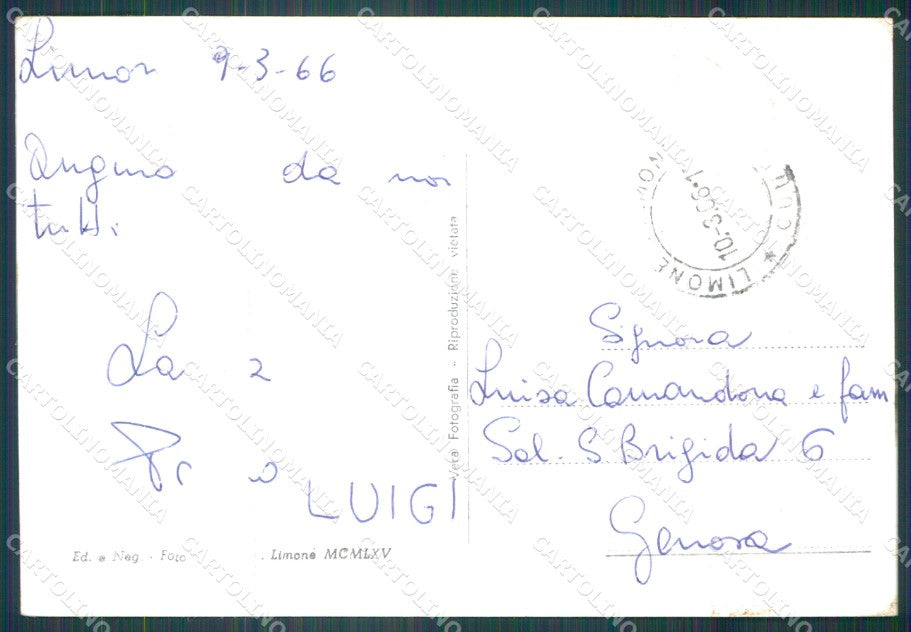 Limon 9-3-66
Auguro da noi
tutti.
La
LUIGI
Ed. e Neg. - Foto . Limone MCMLXV
Vera Fotografia - Riproduzione vietata
LIMONE
10.3.66.1
Signora
Luisa Camandona e fam
Sal. S Brigida 6
Genova
CARTOLINOMANIA